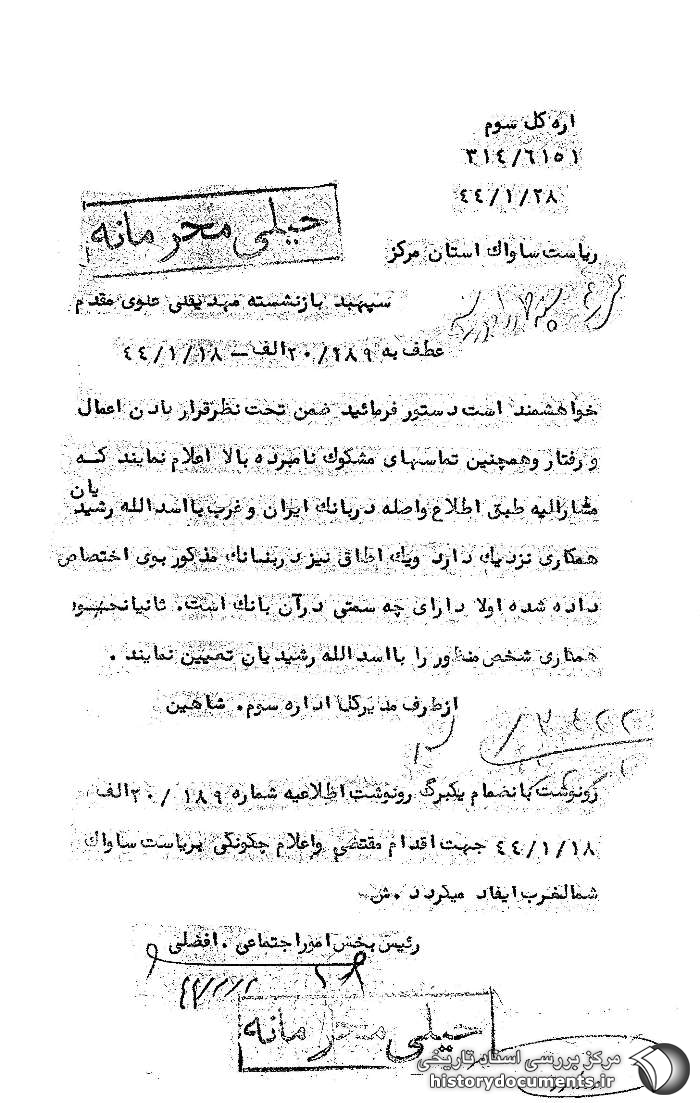 اره کل سوم
۳۱٤/٦١٥١
٤٤/١/٢٨
خیلی محرمانه
ریاست ساواك استان مرکز
سپهبد بازنشسته مهدیقلی علوی مقدم
عطف به ٢٠/١٨٩ الف – ٤٤/١/١٨
خواهشمند است دستور فرمائید ضمن تحت نظر قرار دادن اعمال
و رفتار وهمچنین تماسهای مشکوك نامبرده بالا اعلام نمایند کـه
مشارالیه طبق اطلاع واصله در بانك ایران و غرب با اسدالله رشیدیان
همکاری نزدیك دارد ویك اطاق نیز در بانك مذکور بوی اختصاص
داده شده اولا دارای چه سمتی در آن بانك است. ثانیا نحوه
همکاری شخص منظور را با اسدالله رشیدیان تعیین نمایند .
ازطرف مدیرکل اداره سوم. شاهین
رونوشت بانضمام یکبرگ رونوشت اطلاعیه شماره ٢٠/١٨٩ الف
٤٤/١/١٨ جهت اقدام مقتضی واعلام چگونگی بریاست ساواك
شمالغرب ایفاد میگردد .ش
رئیس بخش امور اجتماعی . افضلی
خیلی محرمانه
مرکز بررسی اسناد تاریخی
historydocuments.ir